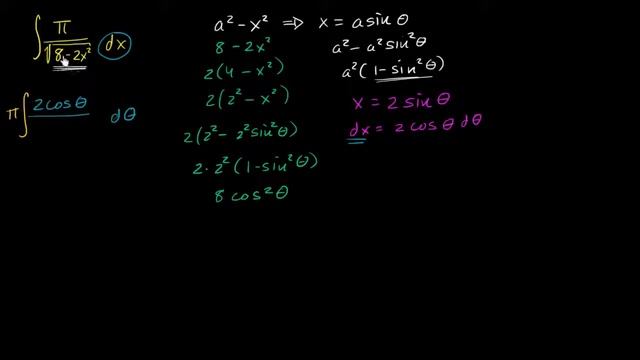 ∫ π / √(8 - 2x²) dx
π ∫ 2cosθ dθ
a² - x² ⟹ x = a sinθ
8 - 2x²
2(4 - x²)
2(2² - x²)
2(2² - 2² sin²θ)
2 · 2² (1 - sin²θ)
8 cos²θ
a² - a² sin²θ
a² (1 - sin²θ)
x = 2 sinθ
dx = 2 cosθ dθ